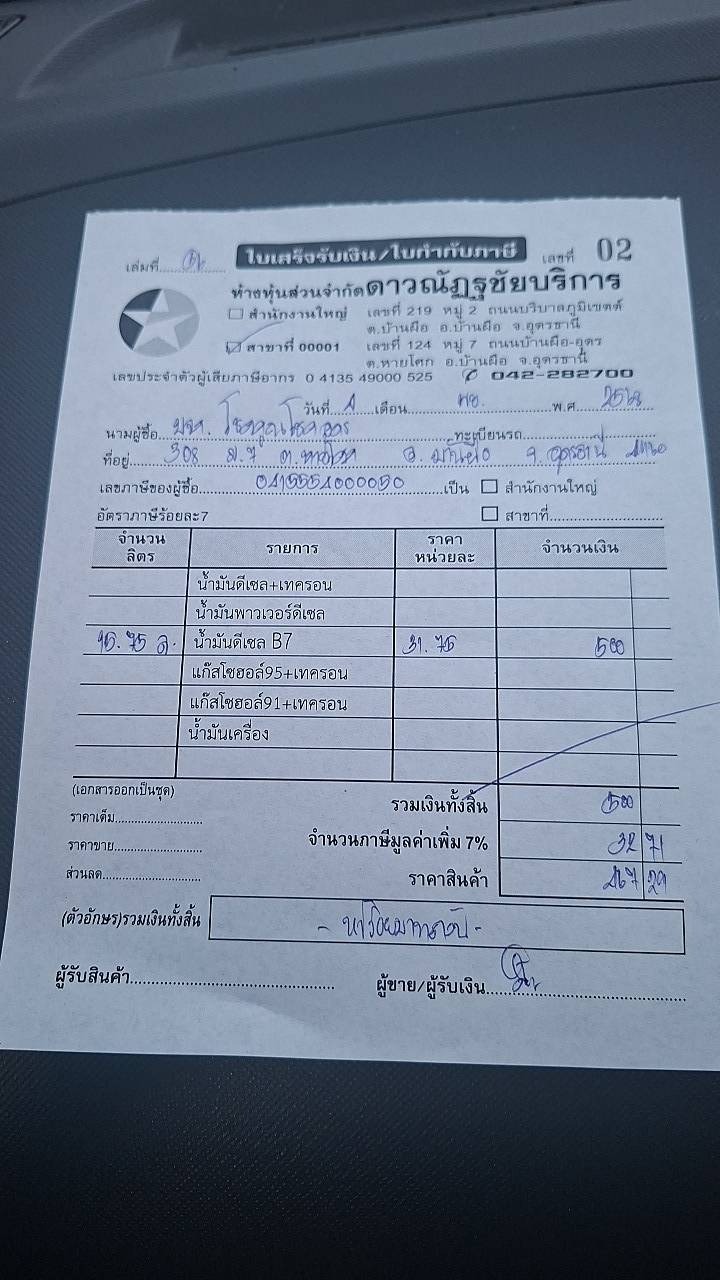 เล่มที่........ ใบเสร็จรับเงิน/ใบกำกับภาษี เลขที่ 02
ห้างหุ้นส่วนจำกัดดาวณัฏฐชัยบริการ
☐ สำนักงานใหญ่ เลขที่ 219 หมู่ 2 ถนนบริบาลภูมิเขตต์
ต.บ้านผือ อ.บ้านผือ จ.อุดรธานี
☑ สาขาที่ 00001 เลขที่ 124 หมู่ 7 ถนนบ้านผือ-อุดร
ต.หายโศก อ.บ้านผือ จ.อุดรธานี
เลขประจำตัวผู้เสียภาษีอากร 0 4135 49000 525 ✆ 042-282700
วันที่ 1 เดือน พย. พ.ศ 2568
นามผู้ซื้อ บจก. ทะเบียนรถ
ที่อยู่ 308 ม.7 ต.หายโศก อ.บ้านผือ จ.อุดรธานี
เลขภาษีของผู้ซื้อ 0415554000050 เป็น ☐ สำนักงานใหญ่
อัตราภาษีร้อยละ7 ☐ สาขาที่
จำนวนลิตร รายการ ราคาหน่วยละ จำนวนเงิน
น้ำมันดีเซล+เทครอน
น้ำมันพาวเวอร์ดีเซล
15.75 ล. น้ำมันดีเซล B7 31.75 500
แก๊สโซฮอล์95+เทครอน
แก๊สโซฮอล์91+เทครอน
น้ำมันเครื่อง
(เอกสารออกเป็นชุด) รวมเงินทั้งสิ้น 500
ราคาเต็ม
จำนวนภาษีมูลค่าเพิ่ม 7% 32 71
ราคาขาย
ส่วนลด ราคาสินค้า 467 29
(ตัวอักษร)รวมเงินทั้งสิ้น - ห้าร้อยบาทถ้วน -
ผู้รับสินค้า ผู้ขาย/ผู้รับเงิน